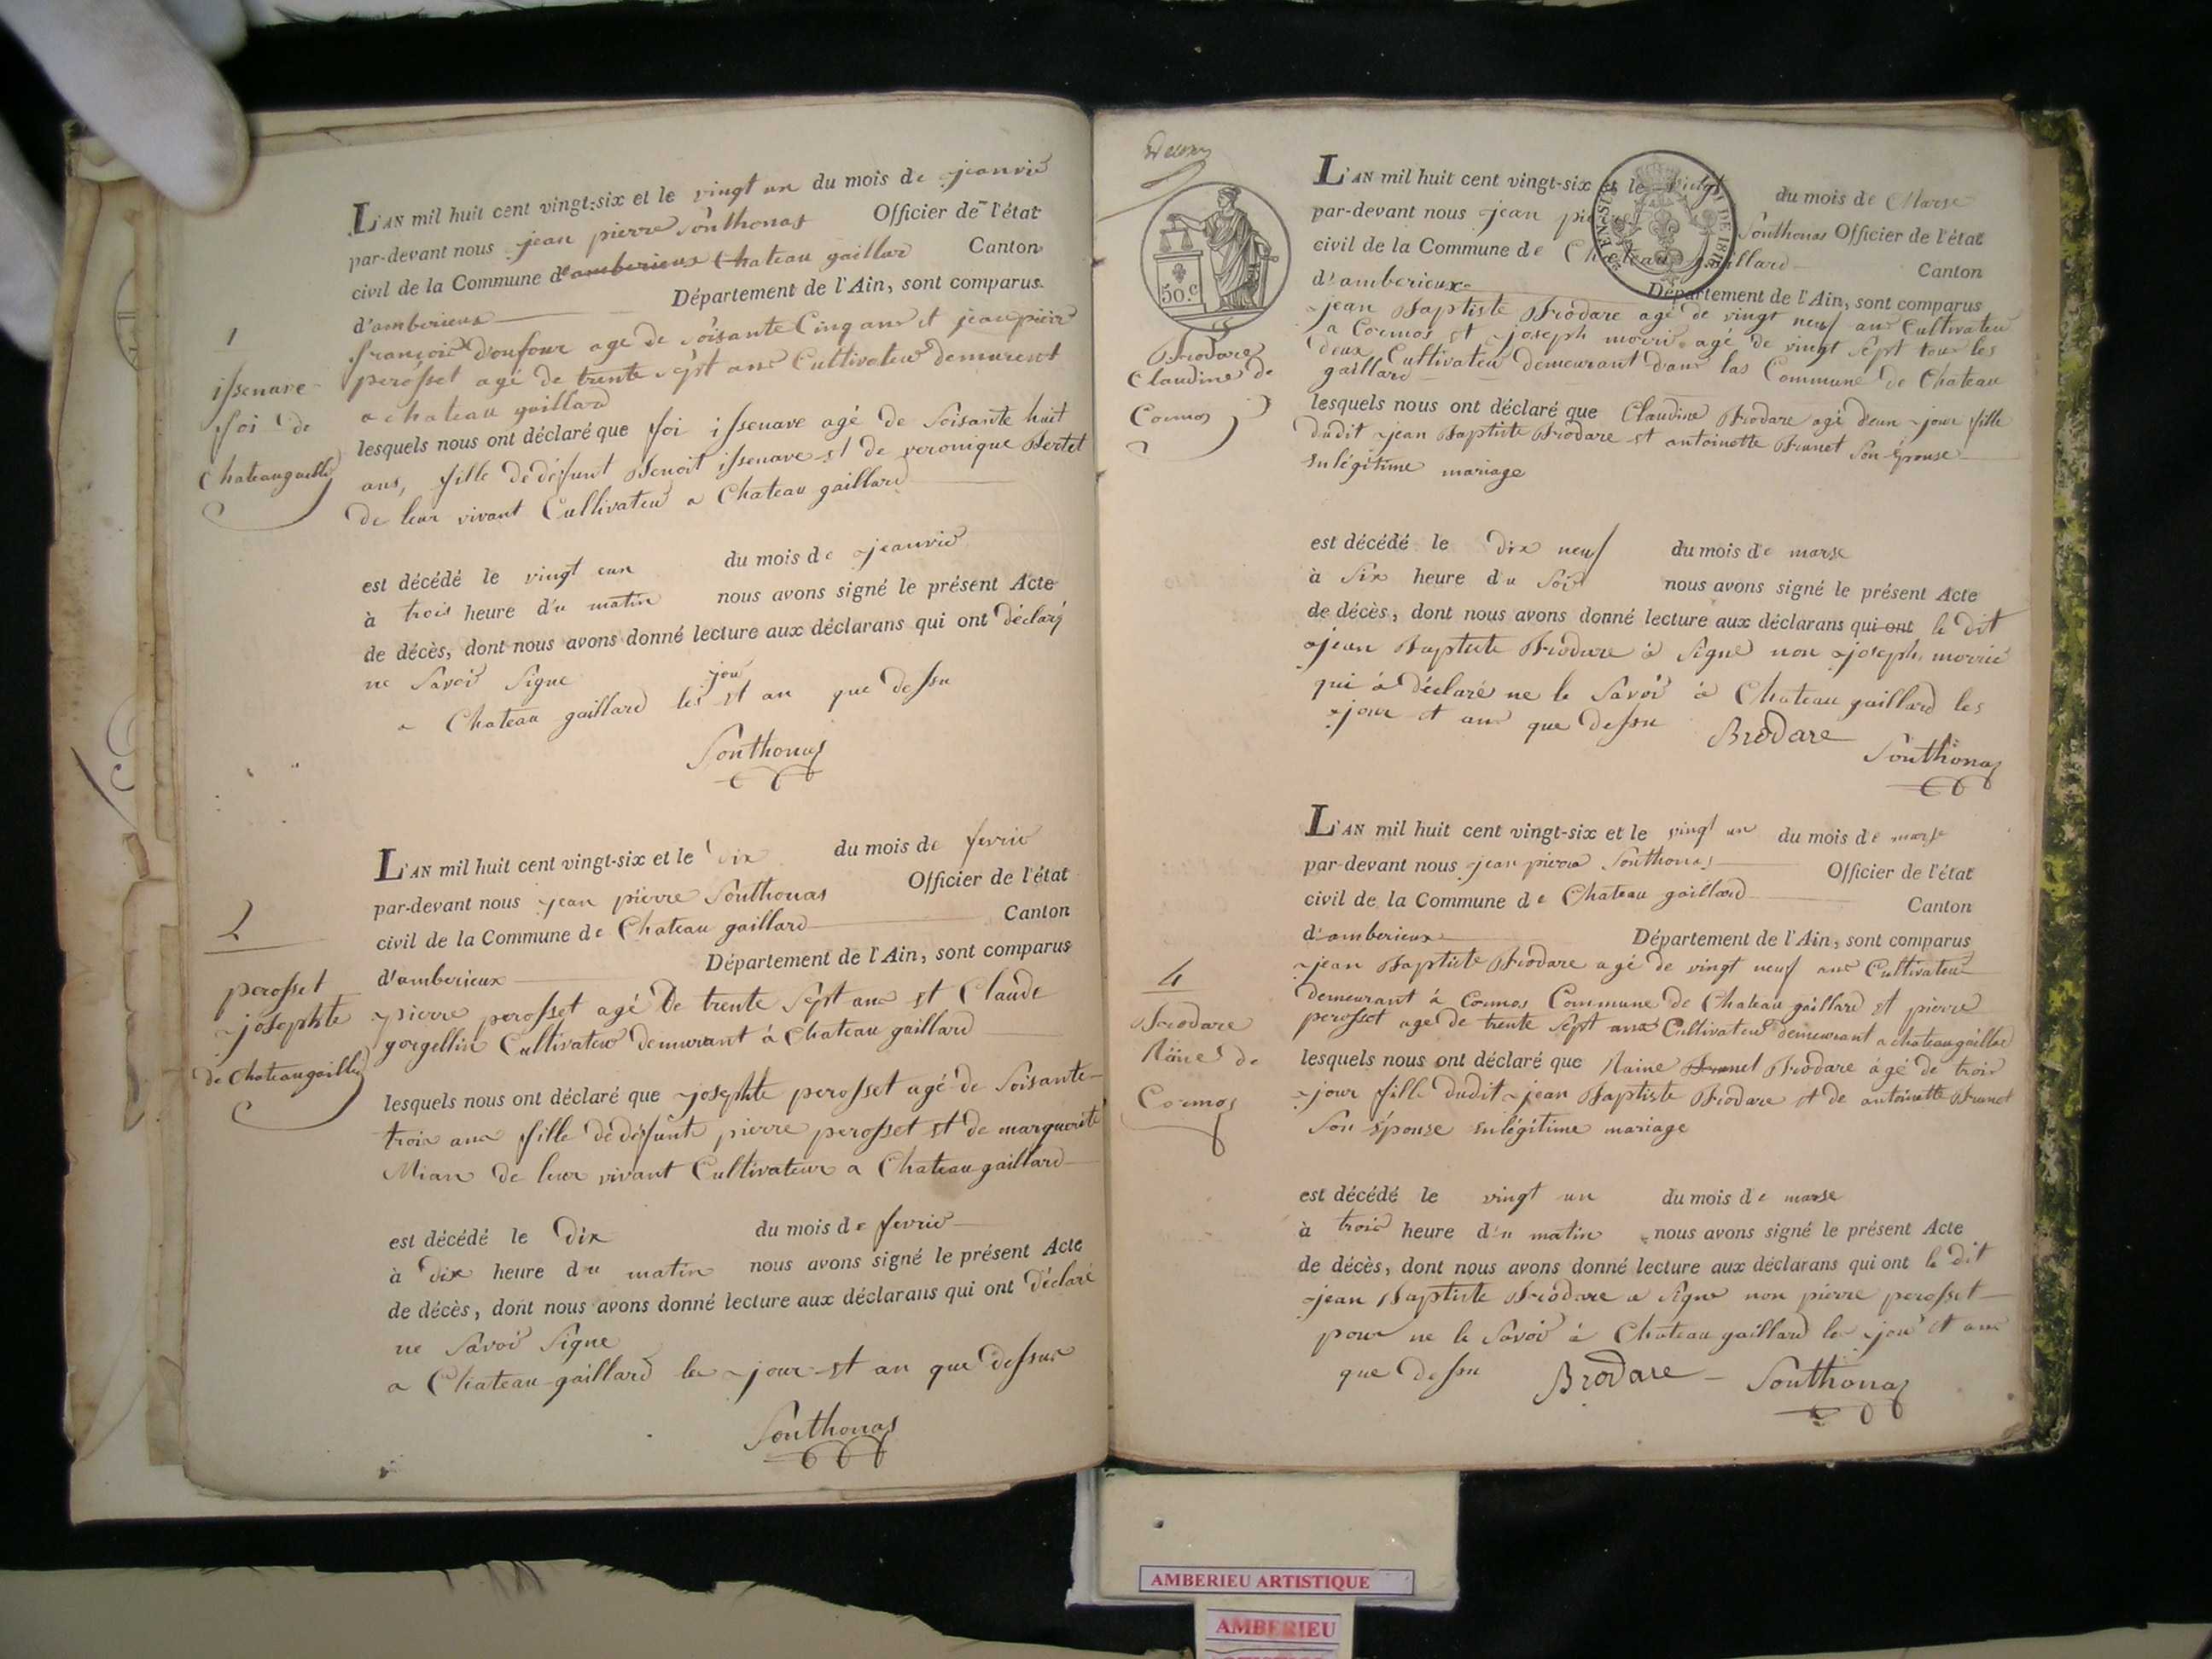 1
issenave
foi de
Chateaugaillard
L'AN mil huit cent vingt-six et le vingt un du mois de jeanvié
par-devant nous jean pierre Sonthonas Officier de l'état
civil de la Commune d'amberieux Chateau gaillard Canton
d'amberieux Département de l'Ain, sont comparus
françois Doufour agé de soisante Cinq ans et jeanpierre
perosset agé de trente sept ans Cultivateur demurent
a chateau gaillard
lesquels nous ont déclaré que foi issenave agé de soisante huit
ans, fille de défunt Benoit issenave et de veronique Bertet
de leur vivant Cultivateur a Chateau gaillard
est décédé le vingt eun du mois de jeanvié
à trois heure du matin nous avons signé le présent Acte
de décès, dont nous avons donné lecture aux déclarans qui ont déclaré
ne savoir signe
a Chateau gaillard les jour et an que dessu
Sonthonas
2
perosset
josephte
de Chateaugaillard
L'AN mil huit cent vingt-six et le dix du mois de fevrié
par-devant nous jean pierre Sonthonas Officier de l'état
civil de la Commune de Chateau gaillard Canton
d'amberieux Département de l'Ain, sont comparus
pierre perosset agé De trente sept ans et Claude
gorgellin Cultivateur demurant á Chateau gaillard
lesquels nous ont déclaré que josephte perosset agé de soisante
trois ans fille de défunt pierre perosset et de marguerite
Mian de leur vivant Cultivateur a Chateau gaillard
est décédé le dix du mois de fevrié
à dix heure du matin nous avons signé le présent Acte
de décès, dont nous avons donné lecture aux déclarans qui ont déclaré
ne savoir signe
a Chateau gaillard les jour et an que dessus
Sonthonas
50.c
Brodare
Claudine de
Cormos
L'AN mil huit cent vingt-six et le vingt du mois de Marse
par-devant nous jean pierre Sonthonas Officier de l'état
civil de la Commune de Chateau gaillard Canton
d'amberieux Département de l'Ain, sont comparus
jean Baptiste Brodare agé de vingt neuf ans Cultivateur
a Cormos et joseph morrié agé de vingt sept tous les
deux Cultivateur demeurant dans las Commune de Chateau
gaillard
lesquels nous ont déclaré que Claudine Brodare agé d'eun jour fille
dudit jean Baptiste Brodare et antoinette Brunet son épouse
en légitime mariage
est décédé le dix neuf du mois de marse
à six heure du soir nous avons signé le présent Acte
de décès, dont nous avons donné lecture aux déclarans qui ont le dit
jean Baptiste Brodare à signé non joseph morrié
qui à déclaré ne le savoir à Chateau gaillard les
jour et ans que dessu Brodare
Sonthonas
4
Brodare
Raine de
Cormos
L'AN mil huit cent vingt-six et le vingt un du mois de marse
par-devant nous jean pierre Sonthonas Officier de l'état
civil de la Commune de Chateau gaillard Canton
d'amberieux Département de l'Ain, sont comparus
jean Baptiste Brodare agé de vingt neuf ans Cultivateur
demeurant á Cormos Commune de Chateau gaillard et pierre
perosset age de trente sept ans Cultivateur demeurant a chateau gaillard
lesquels nous ont déclaré que Raine Brunet Brodare âgé de trois
jour fille dudit jean Baptiste Brodare et de antoinette Brunet
son épouse en légitime mariage
est décédé le vingt un du mois de marse
à trois heure du matin nous avons signé le présent Acte
de décès, dont nous avons donné lecture aux déclarans qui ont le dit
jean Baptiste Brodare a signe non pierre perosset
pour ne le savoir á Chateau gaillard les jour et ans
que dessu Brodare Sonthonas
AMBERIEU ARTISTIQUE
AMBERIEU